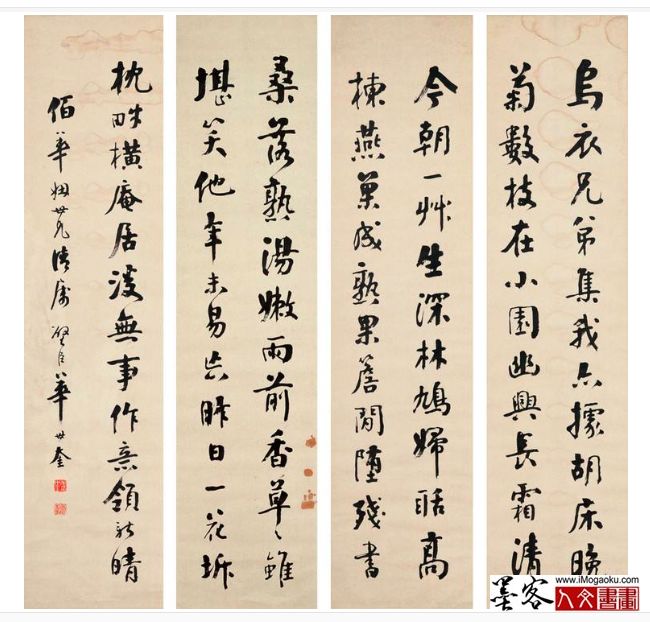 烏衣兄弟集我亦據胡床晚
菊數枝在小園幽興長霜清
今朝一艸生深林鳩婦聒高
棟燕巢成熟果簷間墮殘書
桑落熟湯嫩雨前香草〻雖
堪笑他年未易忘昨日一花坼
枕畔橫庵居無事作意領新晴
伯華姻世兄清屬 璧臣華世奎
墨客
www.iMogaoku.com
人文書畫